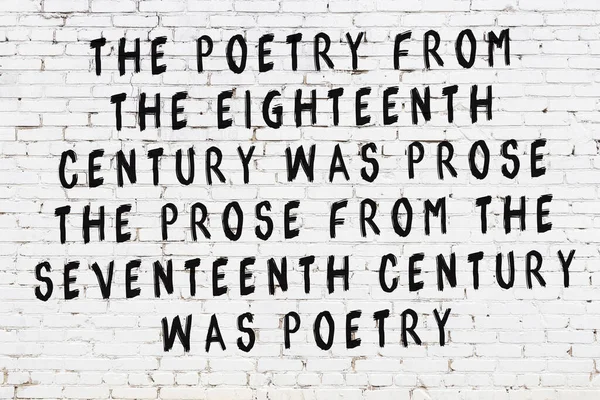 THE POETRY FROM
THE EIGHTEENTH
CENTURY WAS PROSE
THE PROSE FROM THE
SEVENTEENTH CENTURY
WAS POETRY